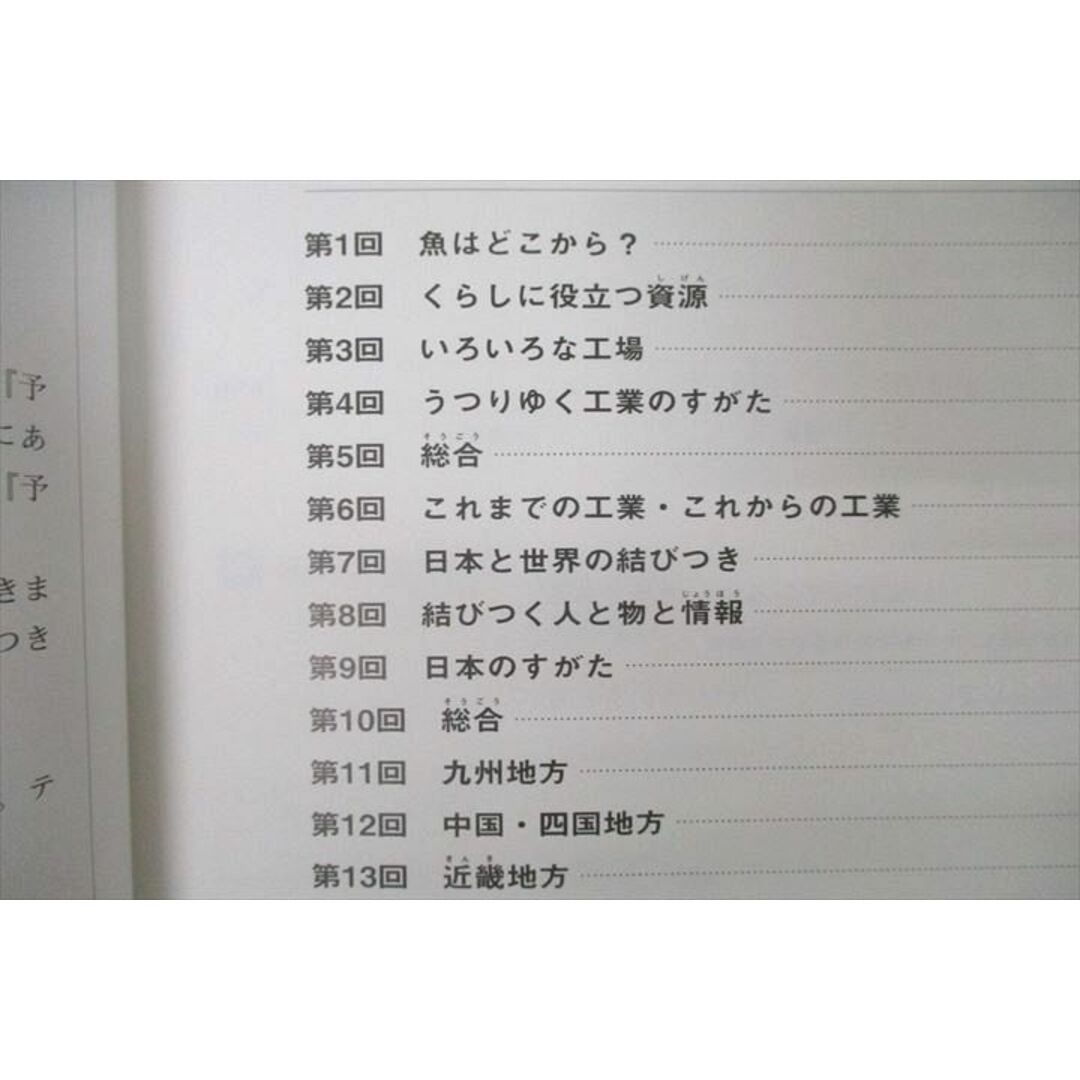 第1回 魚はどこから？
第2回 くらしに役立つ資源
第3回 いろいろな工場
第4回 うつりゆく工業のすがた
第5回 総合
第6回 これまでの工業・これからの工業
第7回 日本と世界の結びつき
第8回 結びつく人と物と情報
第9回 日本のすがた
第10回 総合
第11回 九州地方
第12回 中国・四国地方
第13回 近畿地方
『予
にあ
『予
きま
つき
テ